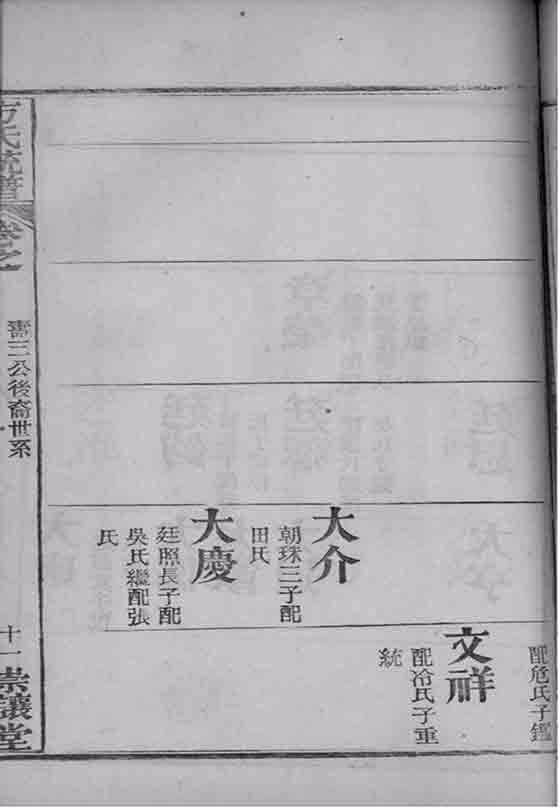 配危氏子鑑
文祥
配冷氏子重
統
大介
朝珠三子配
田氏
大慶
廷照長子配
吳氏繼配張
氏
方氏統譜
卷之
壽三公後裔世系
十一
崇讓堂